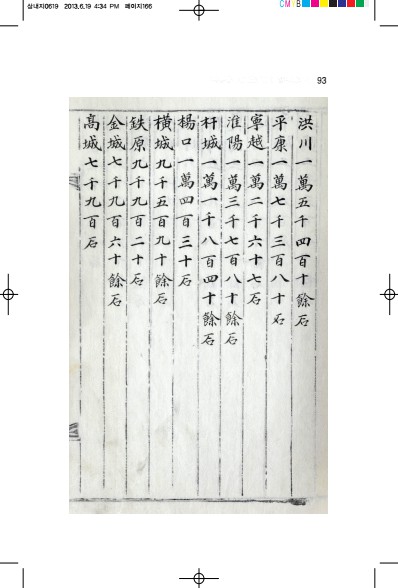 삼내지0619 2013.6.19 4:34 PM 페이지166
CMYB
93
洪川一萬五千四百十餘石
平康一萬七千三百八十石
寧越一萬二千六十七石
淮陽一萬三千七百八十餘石
杆城一萬一千八百四十餘石
楊口一萬四百三十石
橫城九千五百九十餘石
鉄原九千九百二十石
金城七千九百六十餘石
高城七千九百石